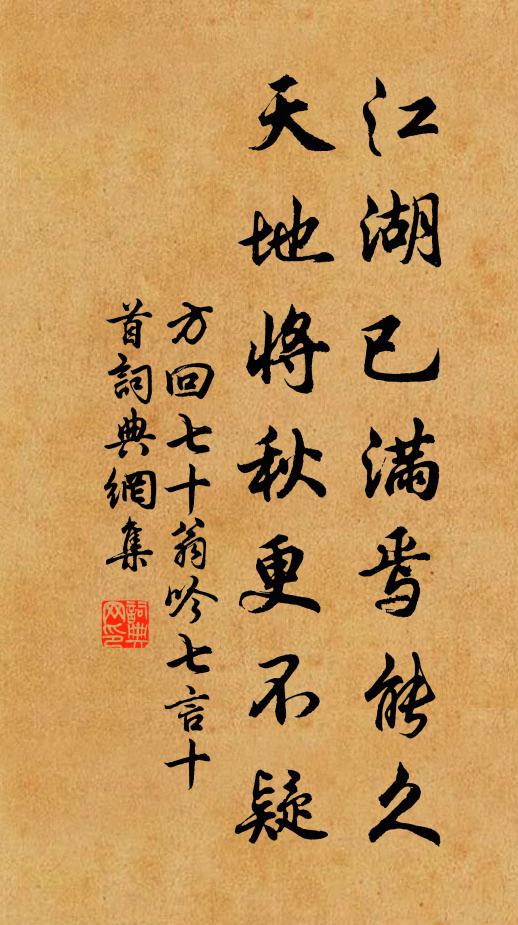 江湖已满焉能久
天地将秋更不疑
方回七十翁吟七言十
首詞典網集
詞典
网印